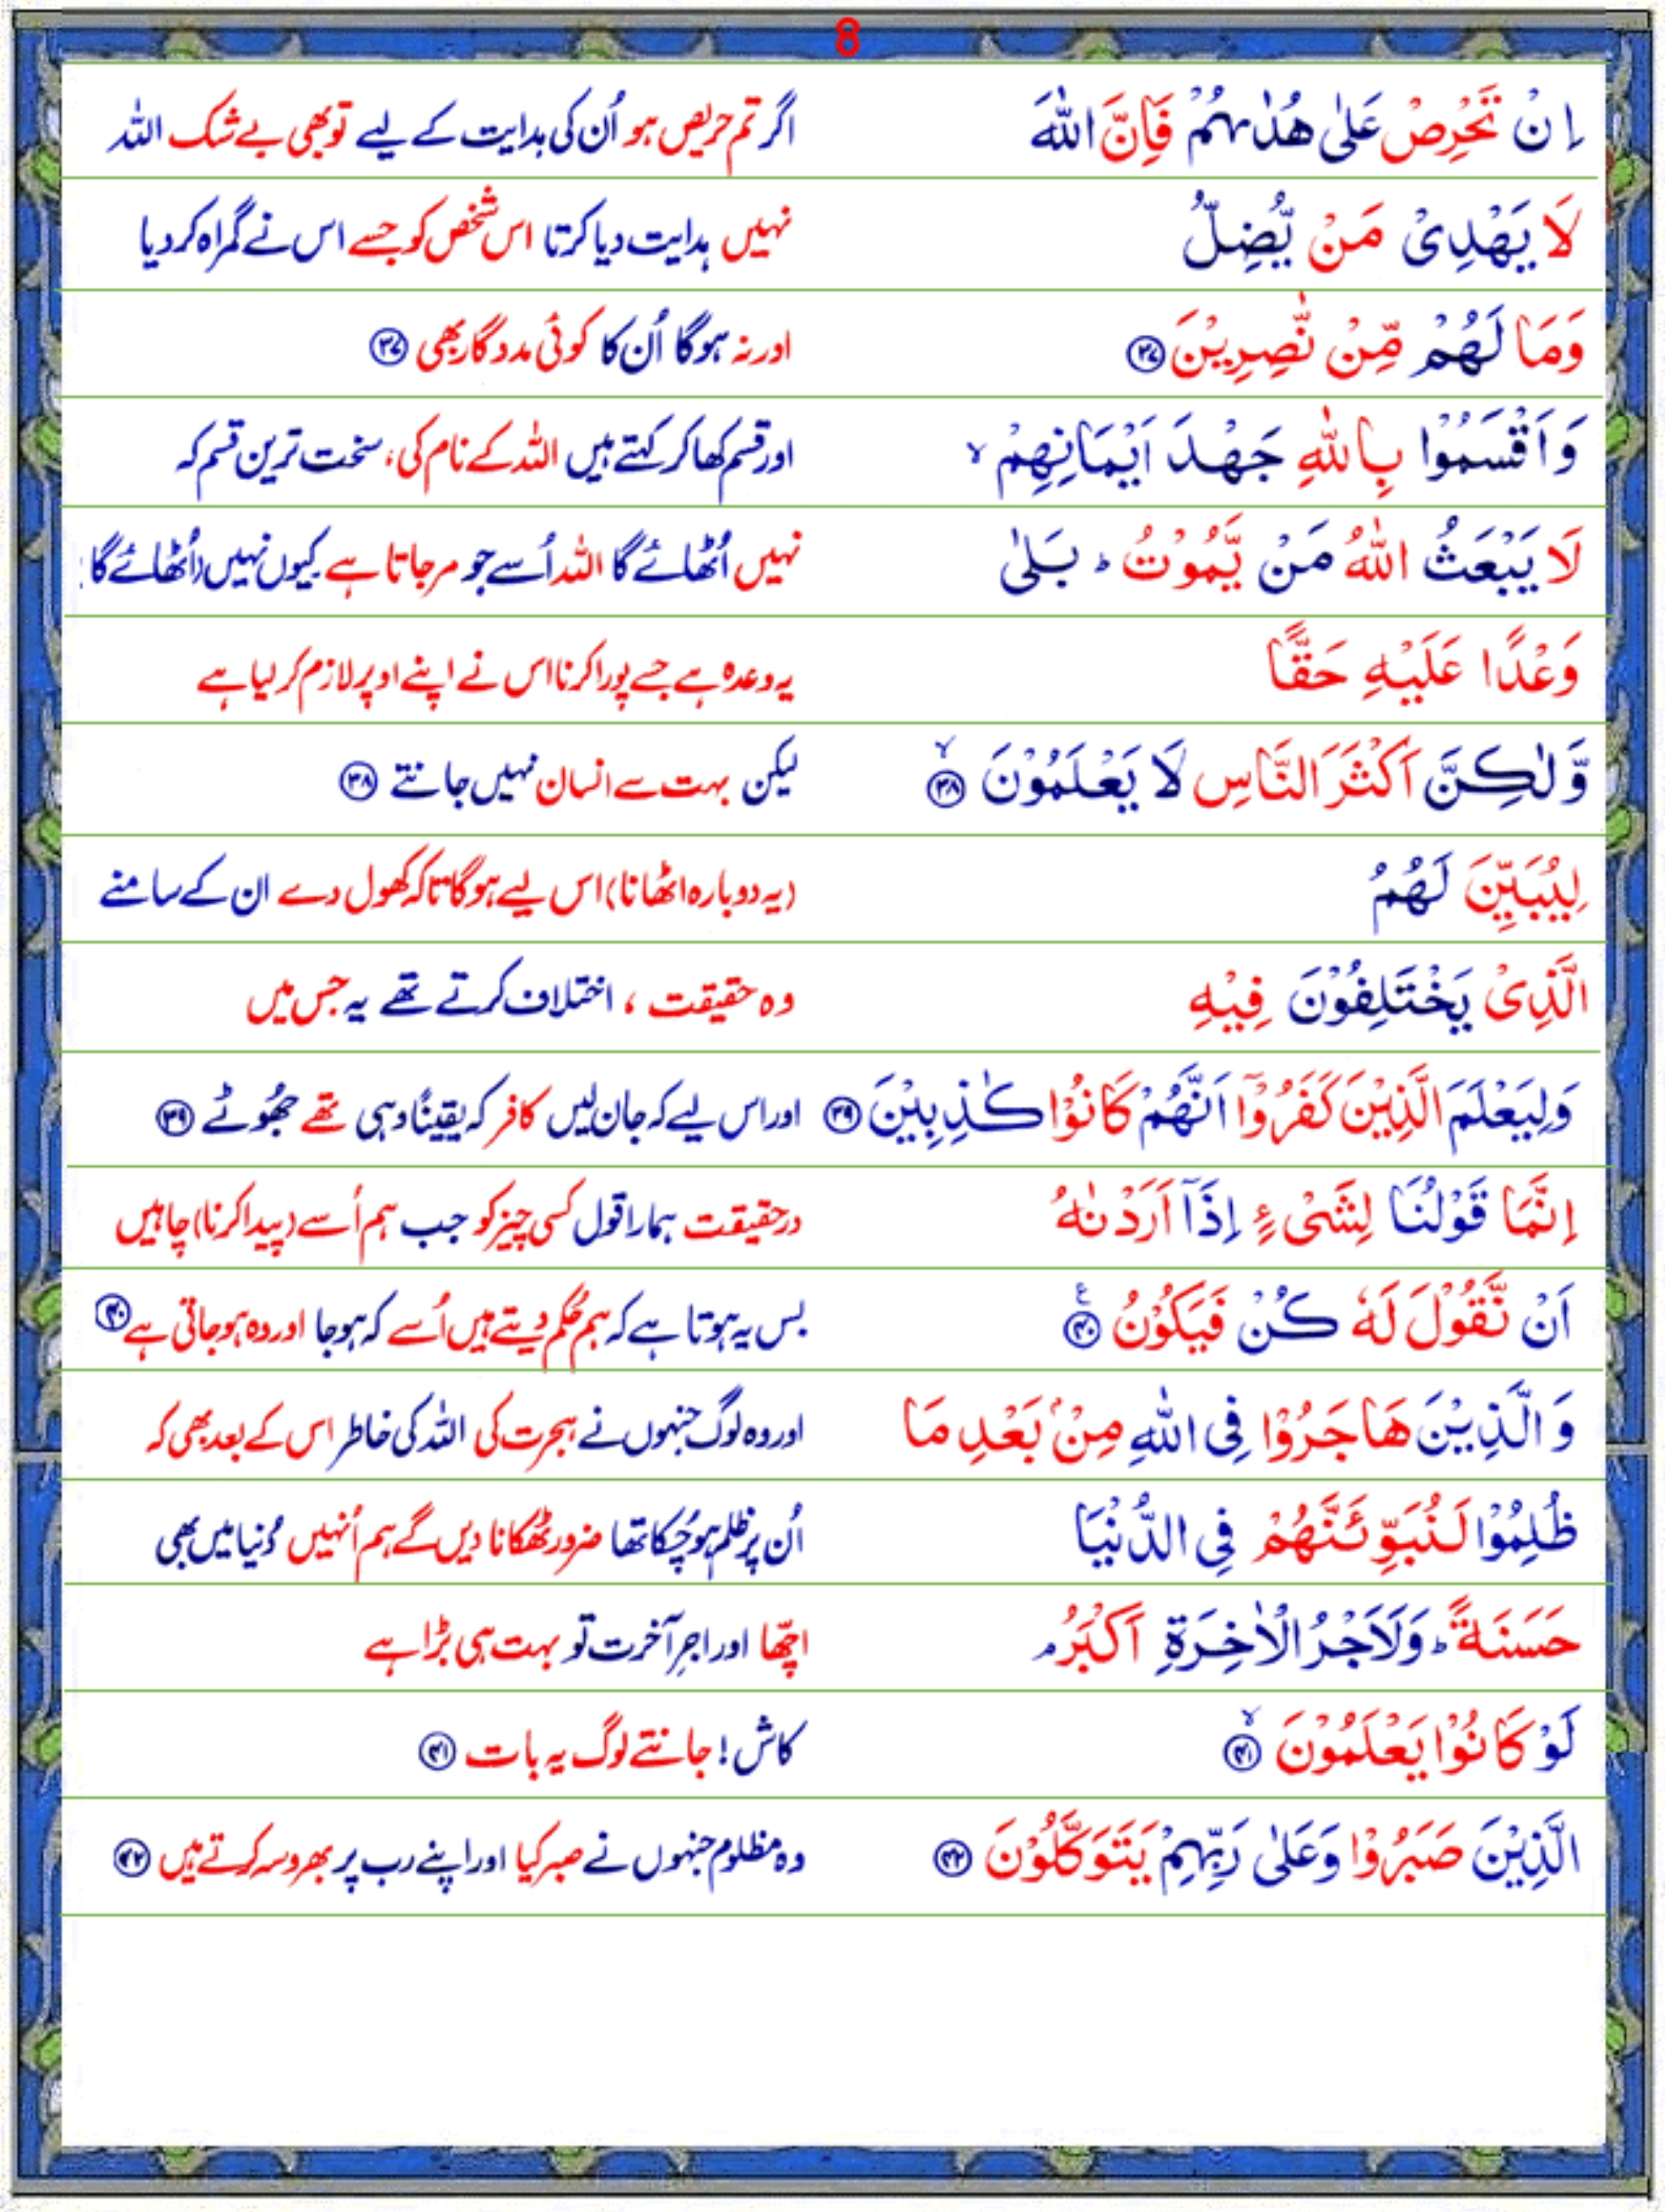 8
اِنْ تَحْرِصْ عَلٰى هُدٰىهُمْ فَاِنَّ اللّٰهَ اگر تم حریص ہو اُن کی ہدایت کے لیے تو بھی بے شک اللہ
لَا يَهْدِىْ مَنْ يُّضِلُّ نہیں ہدایت دیا کرتا اس شخص کو جسے اس نے گمراہ کردیا
وَمَا لَهُمْ مِّنْ نّٰصِرِيْنَ ﴿۳۷﴾ اور نہ ہوگا اُن کا کوئی مددگار بھی ﴿۳۷﴾
وَاَقْسَمُوْا بِاللّٰهِ جَهْدَ اَيْمَانِهِمْ ۙ اور قسم کھا کر کہتے ہیں اللہ کے نام کی، سخت ترین قسم کہ
لَا يَبْعَثُ اللّٰهُ مَنْ يَّمُوْتُ ؕ بَلٰى نہیں اُٹھائے گا اللہ اُسے جو مر جاتا ہے کیوں نہیں (اُٹھائے گا
وَعْدًا عَلَيْهِ حَقًّا یہ وعدہ ہے جسے پورا کرنا اس نے اپنے اوپر لازم کرلیا ہے
وَّلٰكِنَّ اَكْثَرَ النَّاسِ لَا يَعْلَمُوْنَ ۙ﴿۳۸﴾ لیکن بہت سے انسان نہیں جانتے ﴿۳۸﴾
لِيُبَيِّنَ لَهُمُ (یہ دوبارہ اٹھانا) اس لیے ہوگا تاکہ کھول دے ان کے سامنے
الَّذِىْ يَخْتَلِفُوْنَ فِيْهِ وہ حقیقت ، اختلاف کرتے تھے یہ جس میں
وَلِيَعْلَمَ الَّذِيْنَ كَفَرُوْۤا اَنَّهُمْ كَانُوْا كٰذِبِيْنَ ﴿۳۹﴾ اور اس لیے کہ جان لیں کافر کہ یقینًا وہی تھے جھُوٹے ﴿۳۹﴾
اِنَّمَا قَوْلُنَا لِشَىْءٍ اِذَاۤ اَرَدْنٰهُ درحقیقت ہمارا قول کسی چیز کو جب ہم اُسے (پیدا کرنا) چاہیں
اَنْ نَّقُوْلَ لَهٗ كُنْ فَيَكُوْنُ ﴿۴۰﴾ؑ بس یہ ہوتا ہے کہ ہم حُکم دیتے ہیں اُسے کہ ہوجا اور وہ ہوجاتی ہے ﴿۴۰﴾
وَالَّذِيْنَ هَاجَرُوْا فِى اللّٰهِ مِنْۢ بَعْدِ مَا اور وہ لوگ جنہوں نے ہجرت کی اللہ کی خاطر اس کے بعد بھی کہ
ظُلِمُوْا لَنُبَوِّئَنَّهُمْ فِى الدُّنْيَا اُن پر ظلم ہوچُکا تھا ضرور ٹھکانا دیں گے ہم اُنہیں دُنیا میں بھی
حَسَنَةً ؕ وَلَاَجْرُ الْاٰخِرَةِ اَكْبَرُ ۘ اچّھا اور اجرِ آخرت تو بہت ہی بڑا ہے
لَوْ كَانُوْا يَعْلَمُوْنَ ۙ﴿۴۱﴾ کاش! جانتے لوگ یہ بات ﴿۴۱﴾
الَّذِيْنَ صَبَرُوْا وَعَلٰى رَبِّهِمْ يَتَوَكَّلُوْنَ ﴿۴۲﴾ وہ مظلوم جنہوں نے صبر کیا اور اپنے رب پر بھروسہ کرتے ہیں ﴿۴۲﴾